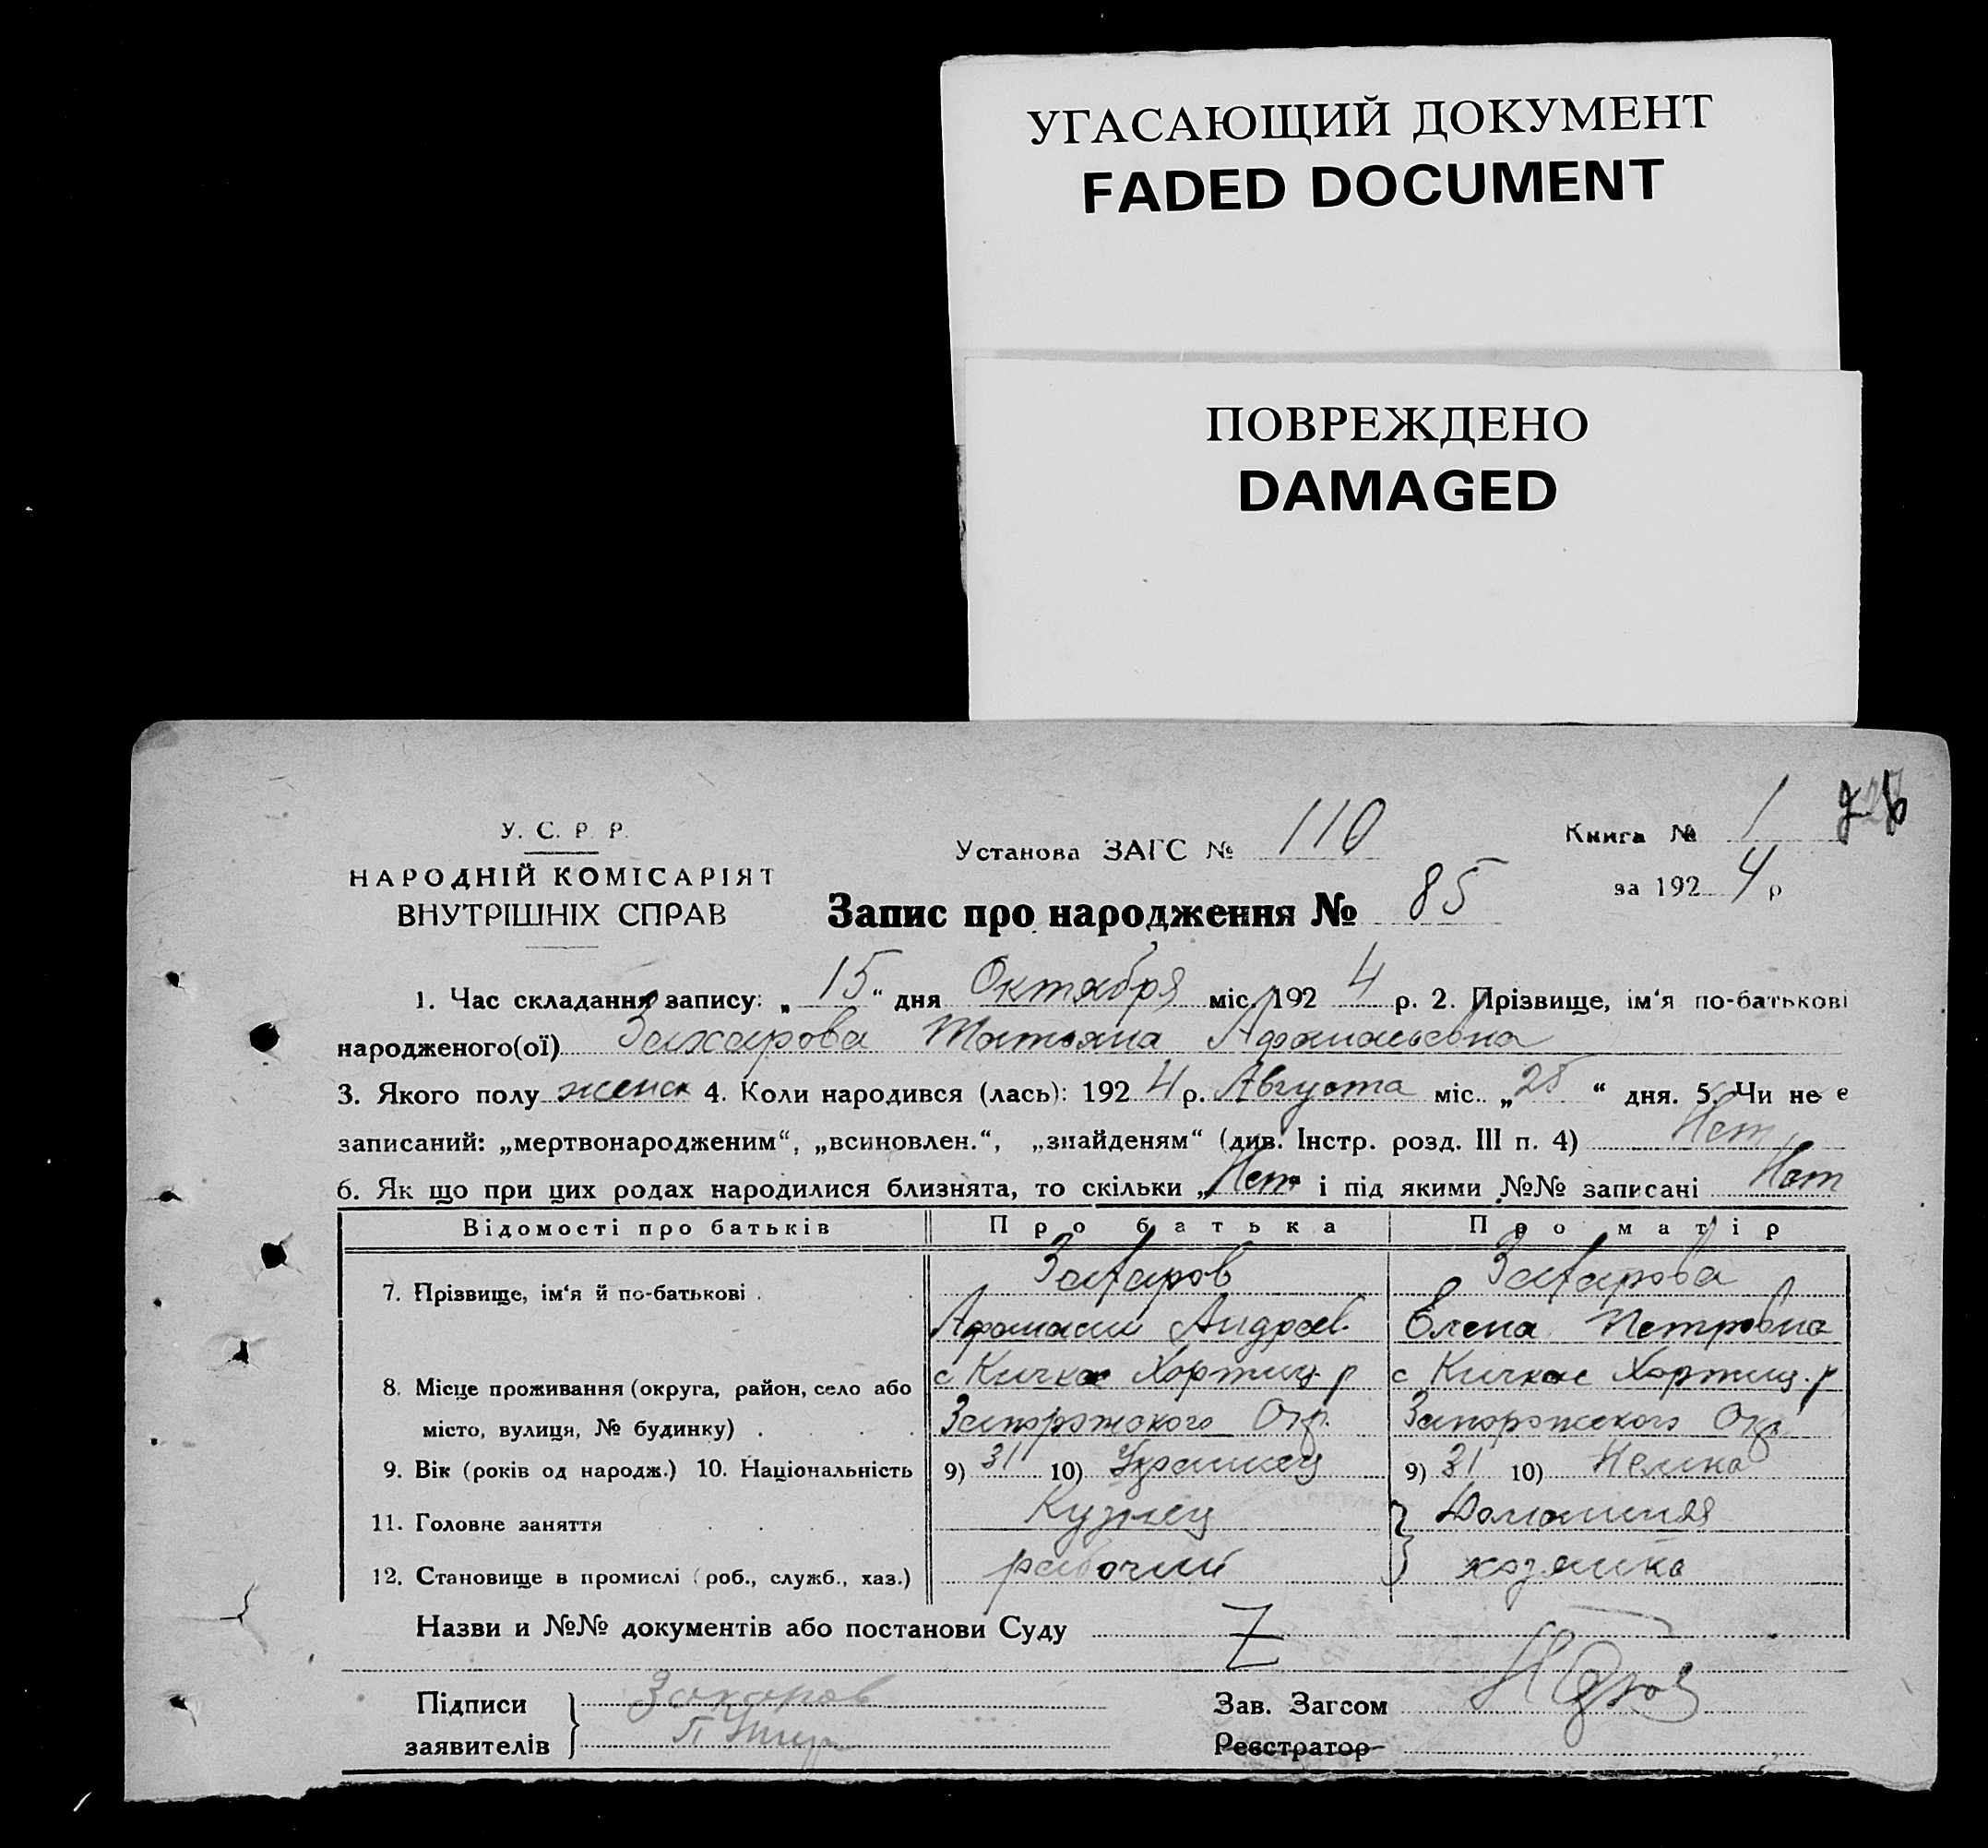 УГАСАЮЩИЙ ДОКУМЕНТ
FADED DOCUMENT
ПОВРЕЖДЕНО
DAMAGED
У. С. Р. Р.
НАРОДНІЙ КОМІСАРІЯТ
ВНУТРІШНІХ СПРАВ
Установа ЗАГС № 110
Книга № 1
за 1924 р
Запис про народження № 85
1. Час складання запису: „15“ дня Октября міс. 1924 р. 2. Прізвище, ім‘я по-батькові
народженого(ої) Захарова Татьяна Афанасьевна
3. Якого полу женск 4. Коли народився (лась): 1924 р. Августа міс. „25“ дня. 5. Чи не є
записаний: „мертвонародженим“, „всиновлен.“, „знайденям“ (див. Інстр. розд. III п. 4) Нет
6. Як що при цих родах народилися близнята, то скільки „Нет“ і під якими №№ записані Нет
Відомості про батьків Про батька Про матір
7. Прізвище, ім‘я й по-батькові . Захаров Захарова
Афанасий Андреев. Елена Петровна
8. Місце проживання (округа, район, село або с Кичкас Хортиц. р с Кичкас Хортиц. р
місто, вулиця, № будинку) . Запорожского Окр. Запорожского Окр.
9. Вік (років од народж.) 10. Національність 9) 31 10) Украинец 9) 31 10) Немка
11. Головне заняття Кузнец Домашняя
12. Становище в промислі (роб., служб., хаз.) рабочий хозяйка
Назви и №№ документів або постанови Суду Z
Підписи Захаров
заявителів
Зав. Загсом
Реєстратор